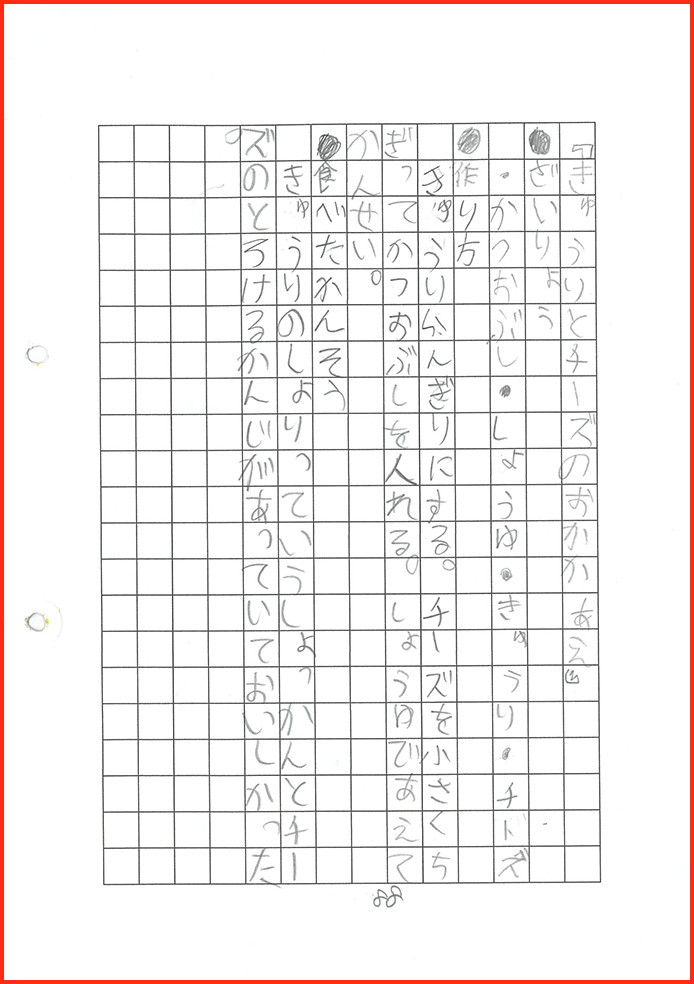 「きゅうりとチーズのおかかあえ」
●ざいりょう
・かつおぶし・しょうゆ・きゅうり・チーズ
●作り方
きゅうりらんぎりにする。チーズを小さくち
ぎってかつおぶしを入れる。しょうゆであえて
かんせい。
●食べたかんそう
きゅうりのしょりっていうしょっかんとチー
ズのとろけるかんじがあっていておいしかった。
88